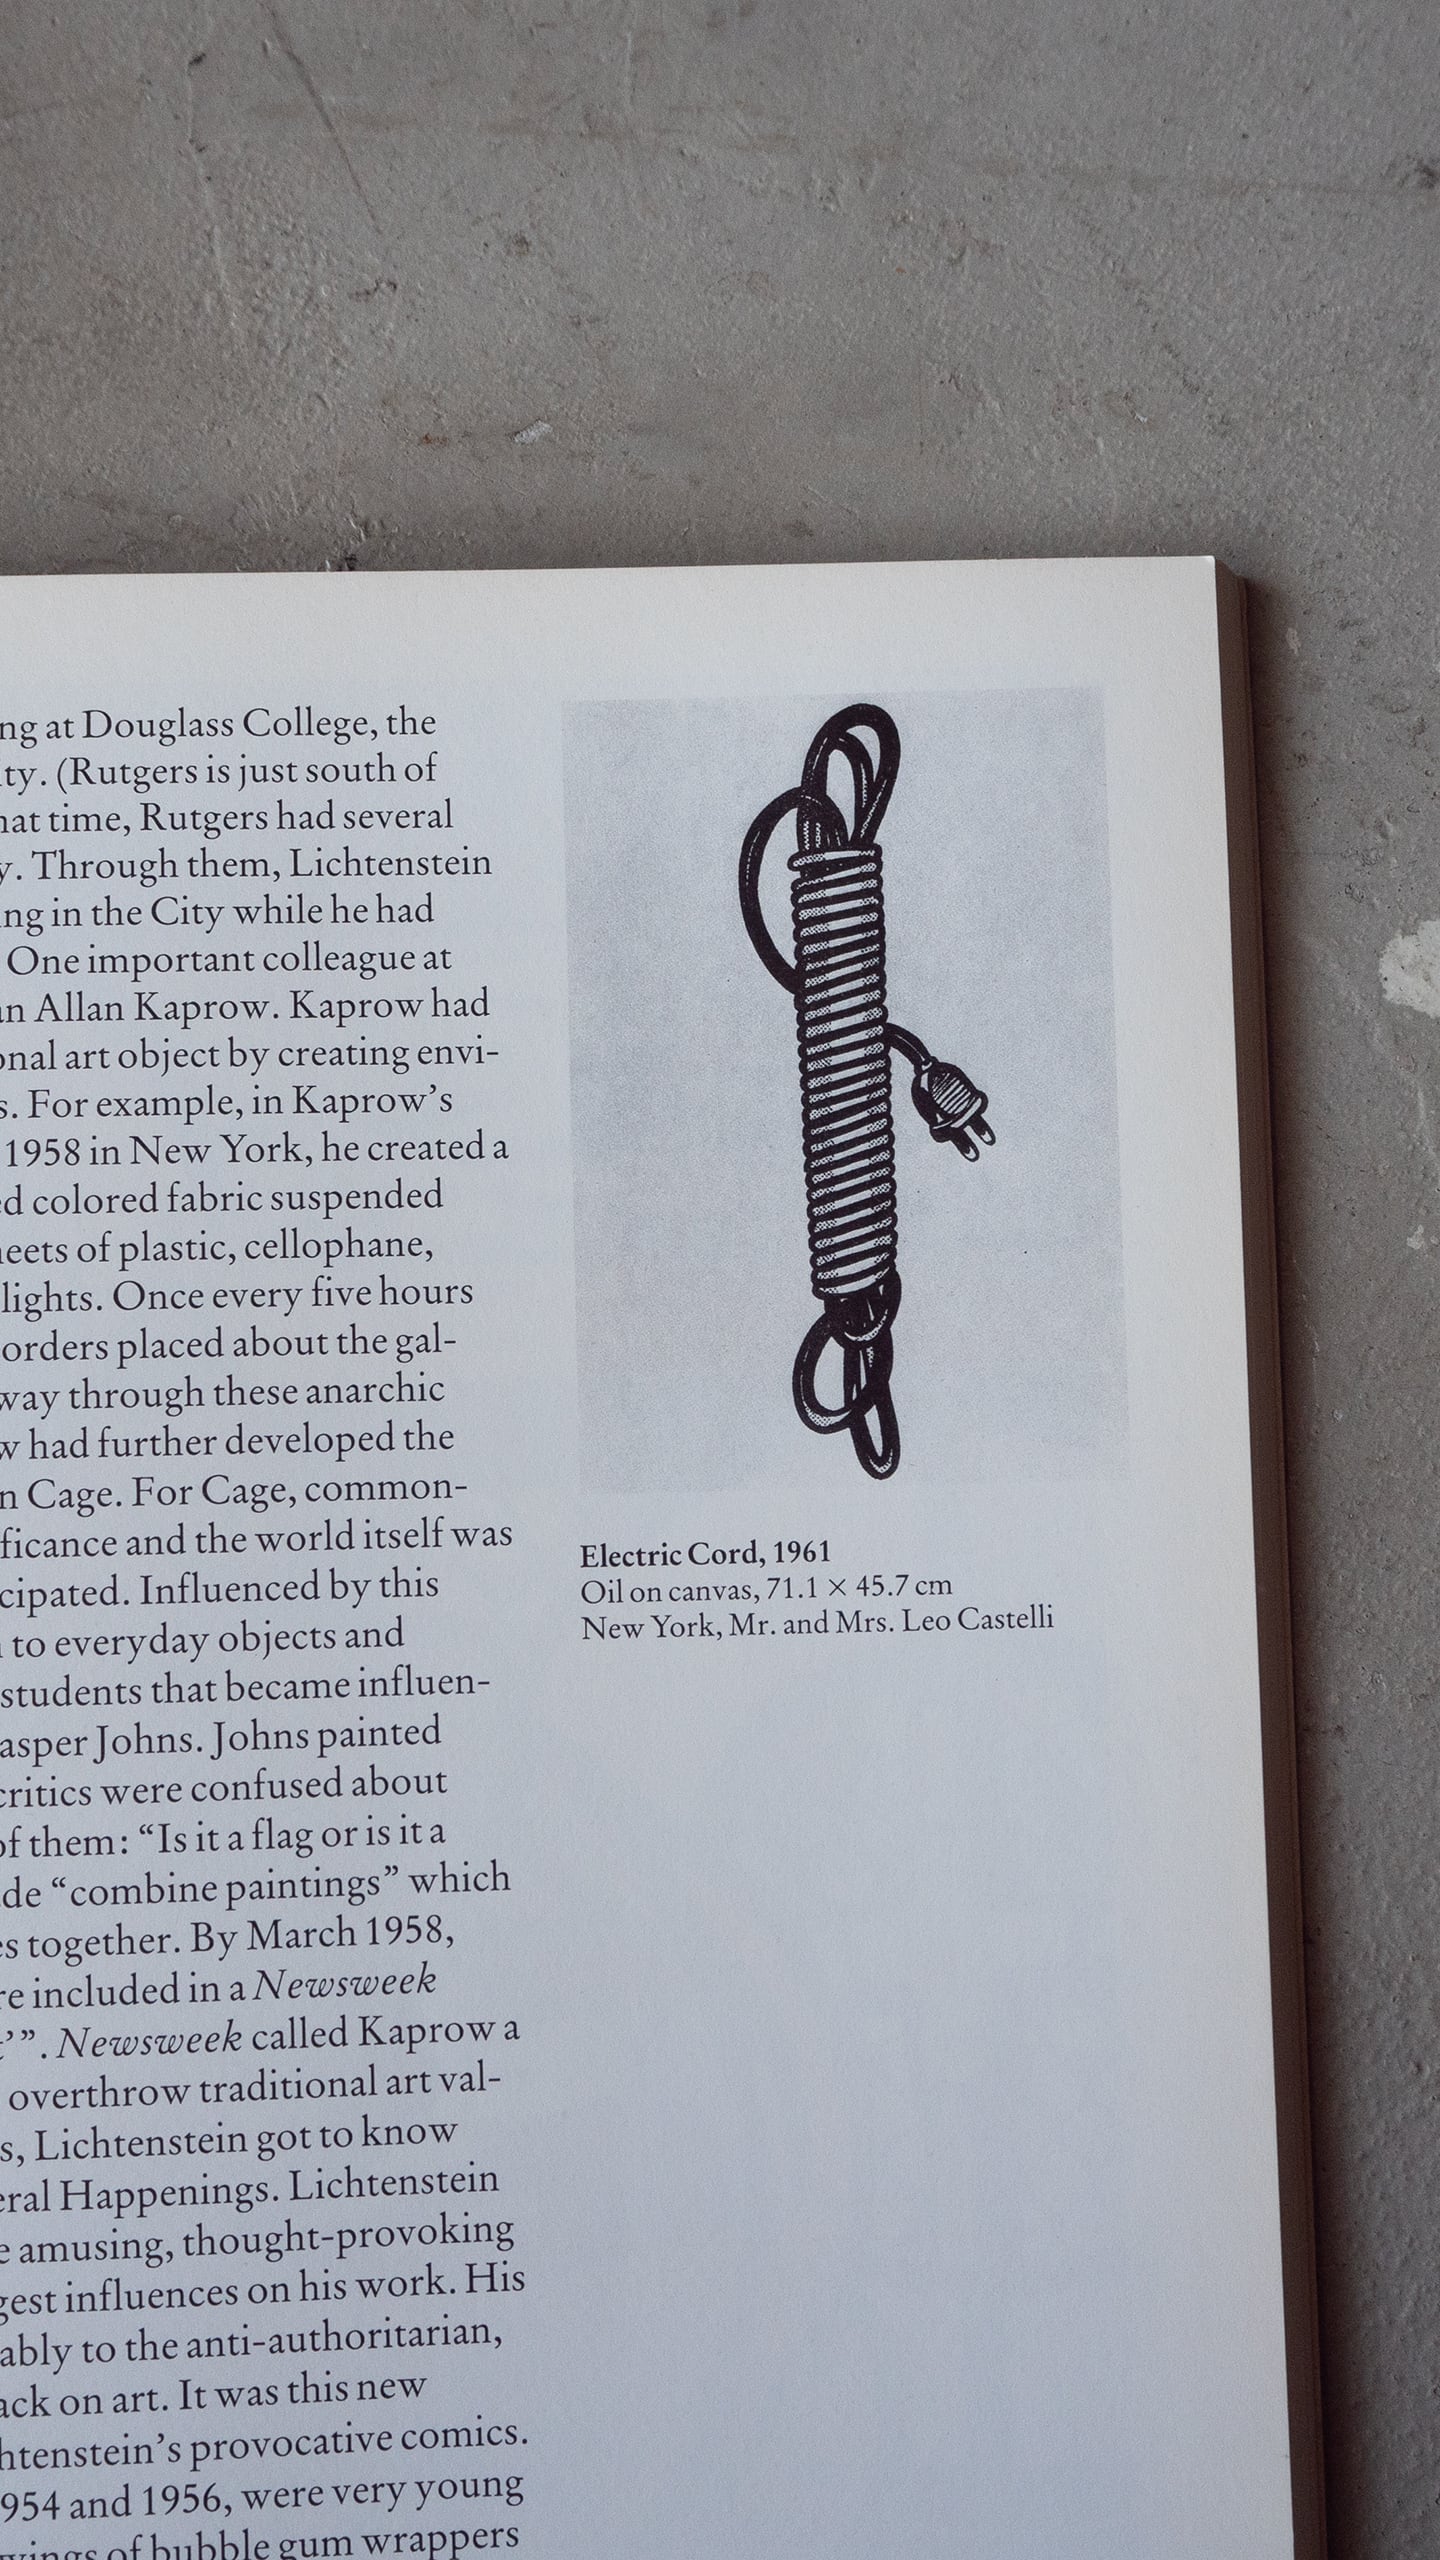 ng at Douglass College, the
ty. (Rutgers is just south of
hat time, Rutgers had several
y. Through them, Lichtenstein
ng in the City while he had
One important colleague at
an Allan Kaprow. Kaprow had
onal art object by creating envi-
s. For example, in Kaprow's
1958 in New York, he created a
ed colored fabric suspended
heets of plastic, cellophane,
lights. Once every five hours
orders placed about the gal-
way through these anarchic
w had further developed the
n Cage. For Cage, common-
ficance and the world itself was
cipated. Influenced by this
to everyday objects and
students that became influen-
asper Johns. Johns painted
critics were confused about
of them: “Is it a flag or is it a
de “combine paintings” which
es together. By March 1958,
re included in a Newsweek
’”. Newsweek called Kaprow a
overthrow traditional art val-
s, Lichtenstein got to know
eral Happenings. Lichtenstein
e amusing, thought-provoking
gest influences on his work. His
ably to the anti-authoritarian,
ack on art. It was this new
htenstein's provocative comics.
954 and 1956, were very young
wings of bubble gum wrappers
Electric Cord, 1961
Oil on canvas, 71.1 × 45.7 cm
New York, Mr. and Mrs. Leo Castelli